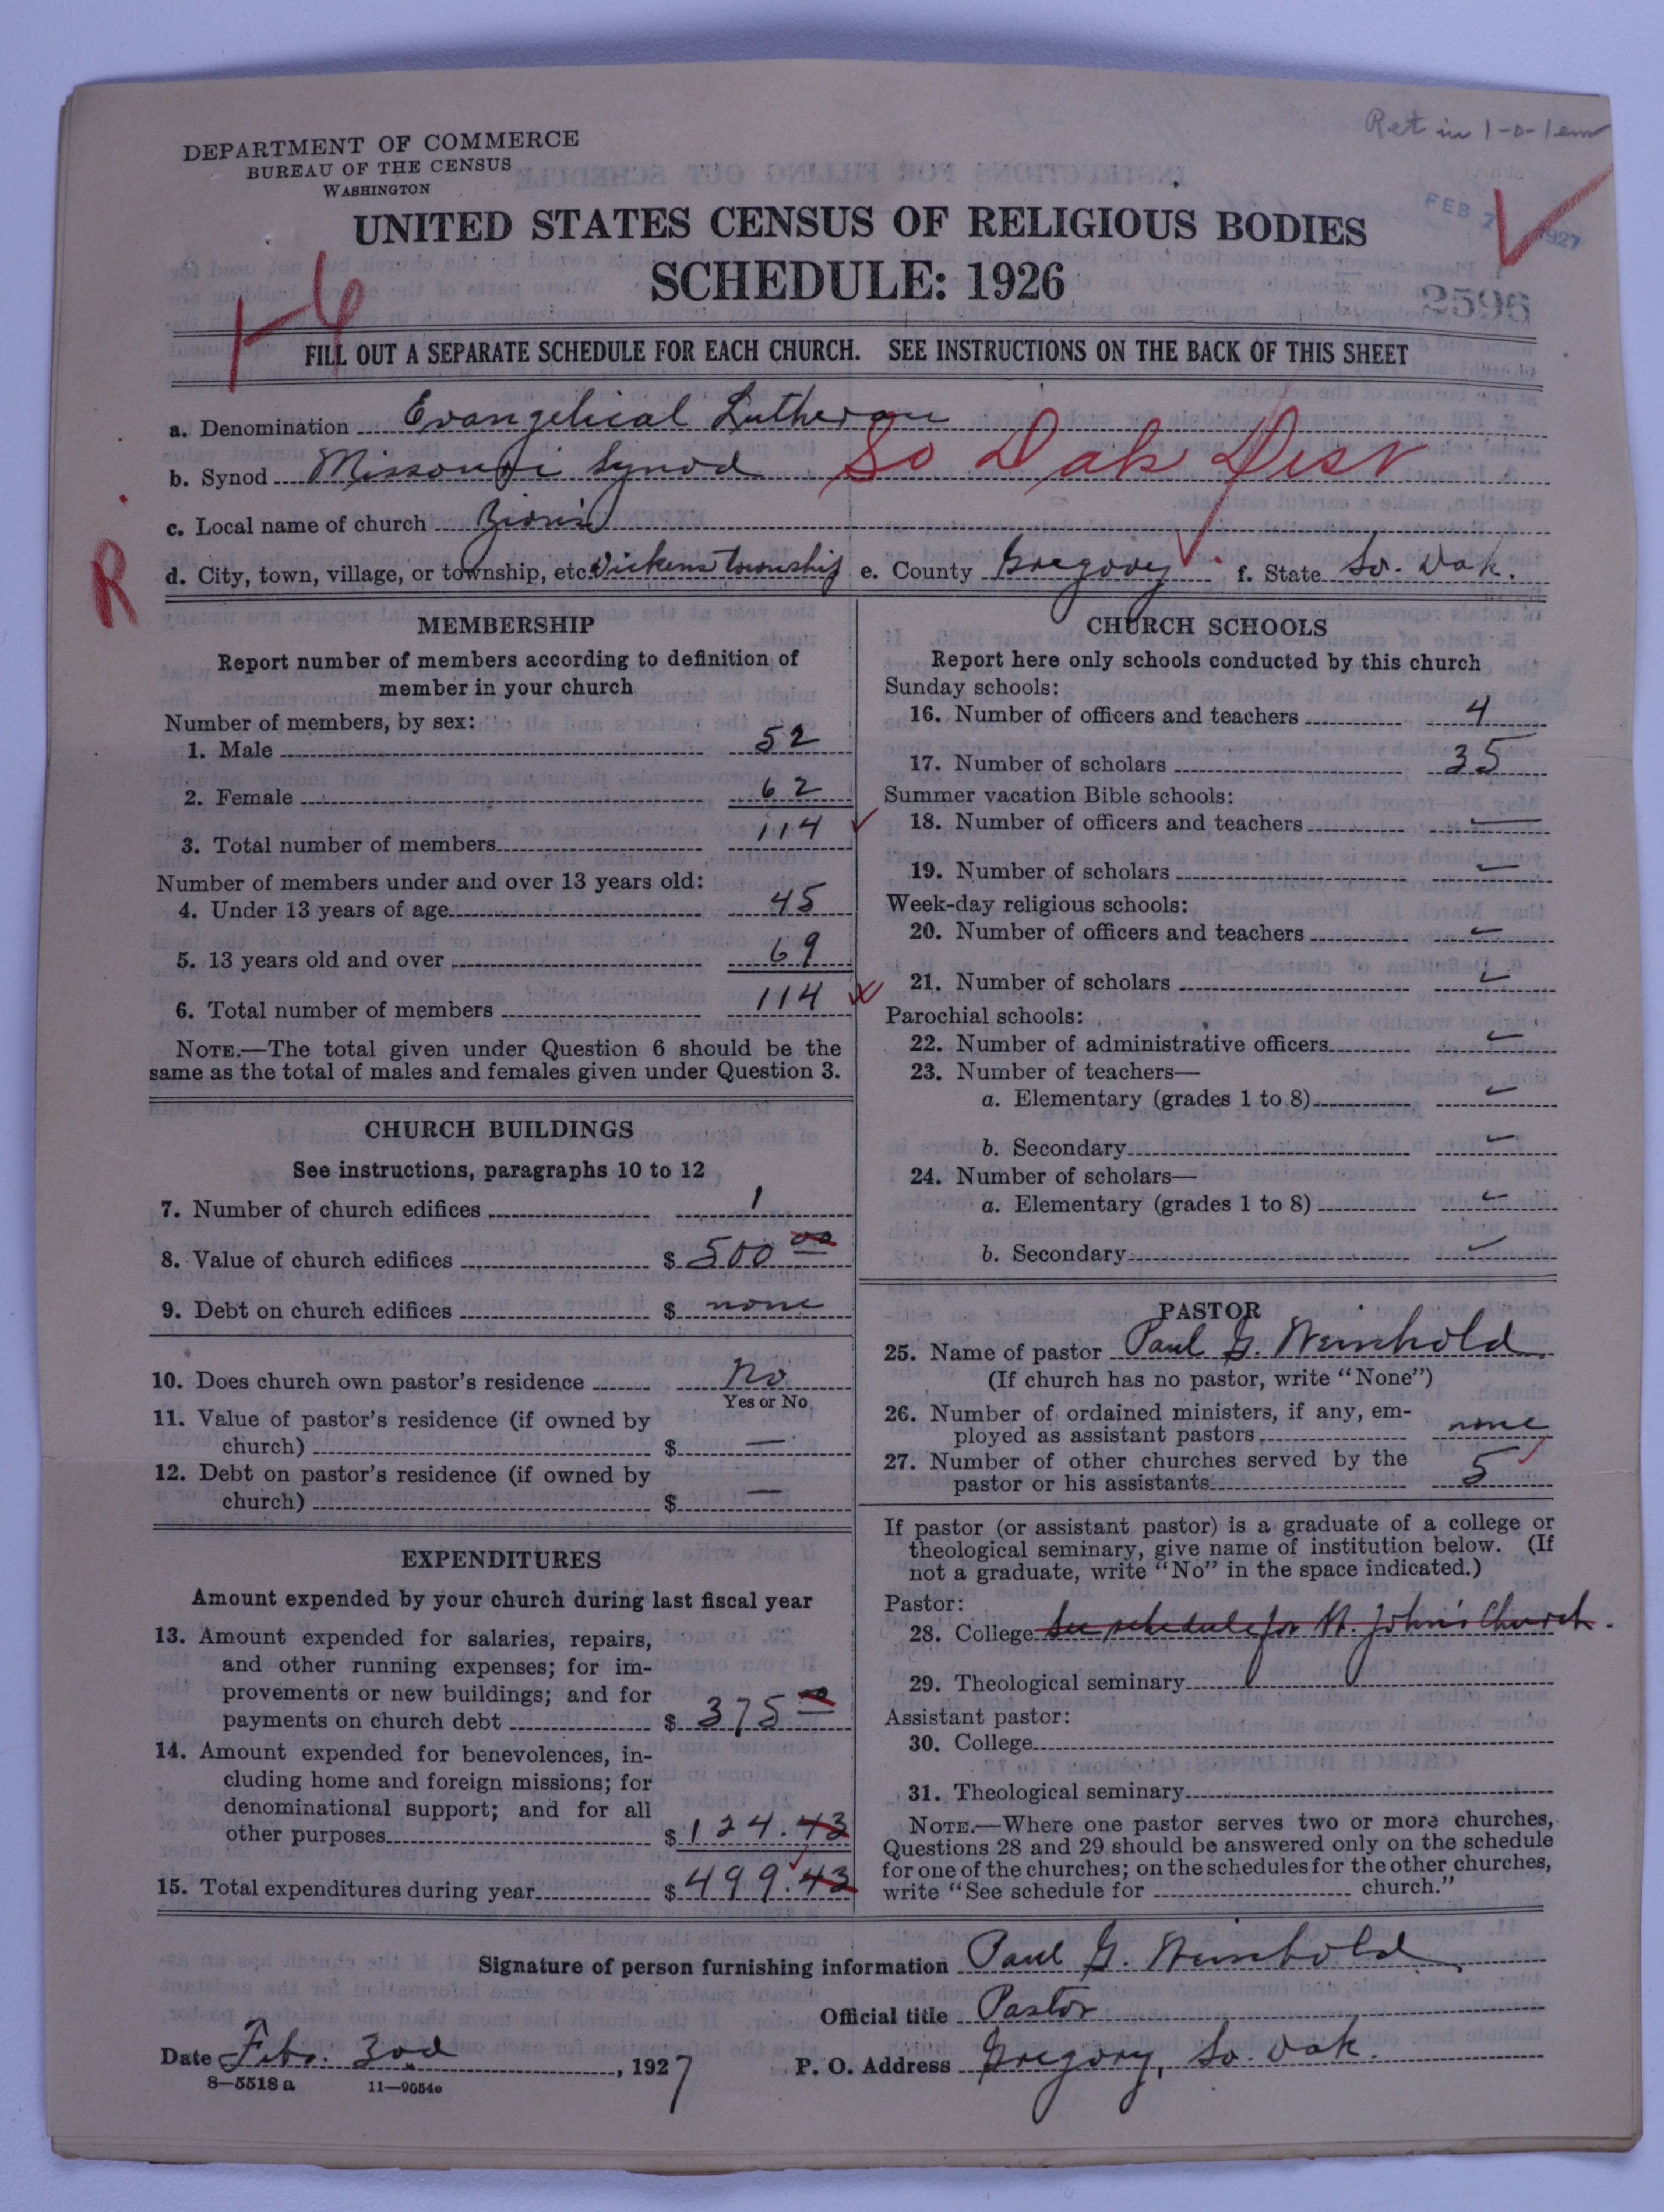 Ret in 1-0-1em
DEPARTMENT OF COMMERCE
BUREAU OF THE CENSUS
WASHINGTON
FEB 7 1927
UNITED STATES CENSUS OF RELIGIOUS BODIES
SCHEDULE: 1926
2596
FILL OUT A SEPARATE SCHEDULE FOR EACH CHURCH. SEE INSTRUCTIONS ON THE BACK OF THIS SHEET
a. Denomination Evangelical Lutheran
b. Synod Missouri Synod So Dak Dist
c. Local name of church Zion's
R
d. City, town, village, or township, etc. Dickens township e. County Gregory f. State So. Dak.
MEMBERSHIP
Report number of members according to definition of
member in your church
Number of members, by sex:
1. Male 52
2. Female 62
3. Total number of members 114
Number of members under and over 13 years old:
4. Under 13 years of age 45
5. 13 years old and over 69
6. Total number of members 114
NOTE.—The total given under Question 6 should be the
same as the total of males and females given under Question 3.
CHURCH BUILDINGS
See instructions, paragraphs 10 to 12
7. Number of church edifices 1
8. Value of church edifices $ 500 00
9. Debt on church edifices $ none
10. Does church own pastor's residence No
Yes or No
11. Value of pastor's residence (if owned by
church) $ —
12. Debt on pastor's residence (if owned by
church) $ —
EXPENDITURES
Amount expended by your church during last fiscal year
13. Amount expended for salaries, repairs,
and other running expenses; for im-
provements or new buildings; and for
payments on church debt $ 375 00
14. Amount expended for benevolences, in-
cluding home and foreign missions; for
denominational support; and for all
other purposes $ 124.43
15. Total expenditures during year $ 499.43
CHURCH SCHOOLS
Report here only schools conducted by this church
Sunday schools:
16. Number of officers and teachers 4
17. Number of scholars 35
Summer vacation Bible schools:
18. Number of officers and teachers —
19. Number of scholars —
Week-day religious schools:
20. Number of officers and teachers —
21. Number of scholars —
Parochial schools:
22. Number of administrative officers —
23. Number of teachers—
a. Elementary (grades 1 to 8) —
b. Secondary —
24. Number of scholars—
a. Elementary (grades 1 to 8) —
b. Secondary —
PASTOR
25. Name of pastor Paul G. Weinhold
(If church has no pastor, write "None")
26. Number of ordained ministers, if any, em-
ployed as assistant pastors none
27. Number of other churches served by the
pastor or his assistants 5
If pastor (or assistant pastor) is a graduate of a college or
theological seminary, give name of institution below. (If
not a graduate, write "No" in the space indicated.)
Pastor:
28. College See schedule for St. John's Church.
29. Theological seminary
Assistant pastor:
30. College
31. Theological seminary
NOTE.—Where one pastor serves two or more churches,
Questions 28 and 29 should be answered only on the schedule
for one of the churches; on the schedules for the other churches,
write "See schedule for church."
Signature of person furnishing information Paul G. Weinhold
Official title Pastor
Date Feb. 3rd, 1927 P. O. Address Gregory, So. Dak.
8—5518 a 11—9054c